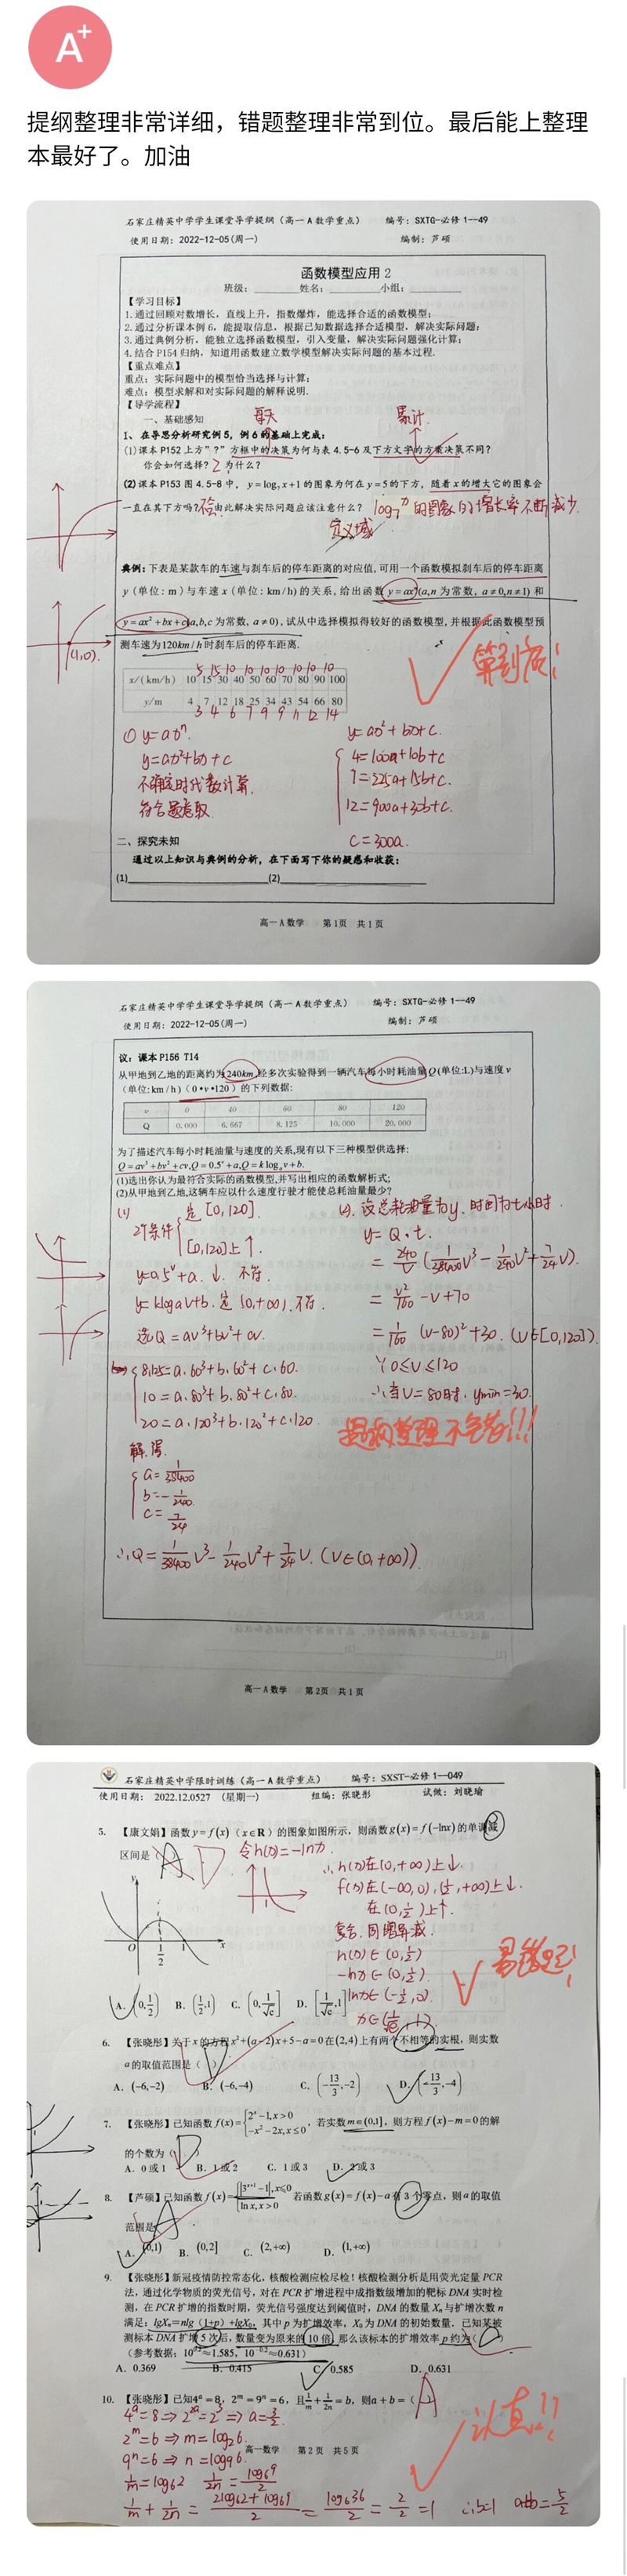 A+
提纲整理非常详细，错题整理非常到位。最后能上整理
本最好了。加油
石家庄精英中学学生课堂导学提纲（高一A数学重点） 编号：SXTG-必修1--49
使用日期：2022-12-05(周一) 编制：芦硕
函数模型应用2
班级：________姓名：________小组：________
【学习目标】
1.通过回顾对数增长，直线上升，指数爆炸，能选择合适的函数模型；
2.通过分析课本例6，能提取信息，根据已知数据选择合适模型，解决实际问题；
3.通过典例分析，能独立选择函数模型，引入变量，解决实际问题强化计算；
4.结合P154归纳，知道用函数建立数学模型解决实际问题的基本过程.
【重点难点】
重点：实际问题中的模型恰当选择与计算；
难点：模型求解和对实际问题的解释说明.
【导学流程】
一、基础感知
每天 累计
1、在导思分析研究例5，例6的基础上完成：
(1)课本P152上方"？"方框中的决策为何与表4.5-6及下方文字的方案决策不同？
你会如何选择？为什么？
(2)课本P153图4.5-8中，y=log₇x+1的图象为何在y=5的下方，随着x的增大它的图象会
一直在其下方吗？由此解决实际问题应该注意什么？
log₇ˣ的图象的增长率不断减少.
定义域
典例：下表是某款车的车速与刹车后的停车距离的对应值，可用一个函数模拟刹车后的停车距离
y（单位：m）与车速x（单位：km/h）的关系，给出函数y=axⁿ(a,n为常数，a≠0,n≠1)和
y=ax²+bx+c(a,b,c为常数，a≠0)，试从中选择模拟得较好的函数模型，并根据此函数模型预
(1,0).
测车速为120km/h时刹车后的停车距离.
算到底！
5 15 10 10 10 10 10 10 10
x/(km/h) 10 15 30 40 50 60 70 80 90 100
y/m 4 7 12 18 25 34 43 54 66 80
3 4 6 7 9 9 11 12 14
① y=axⁿ. y=ax²+bx+c.
y=ax²+bx+c 4=100a+10b+c
不确定时代数计算. 7=225a+15b+c.
符合题意取. 12=900a+30b+c.
二、探究未知 c=300a.
通过以上知识与典例的分析，在下面写下你的疑惑和收获：
(1)________(2)________
高一A数学 第1页 共1页
石家庄精英中学学生课堂导学提纲（高一A数学重点） 编号：SXTG-必修1--49
使用日期：2022-12-05(周一) 编制：芦硕
议：课本P156 T14
从甲地到乙地的距离约为240km,经多次实验得到一辆汽车每小时耗油量Q(单位:L)与速度v
（单位:km/h）（0•v•120）的下列数据:
v 0 40 60 80 120
Q 0.000 6.667 8.125 10.000 20.000
为了描述汽车每小时耗油量与速度的关系,现有以下三种模型供选择:
Q=av³+bv²+cv,Q=0.5ᵛ+a,Q=klogₐv+b.
(1)选出你认为最符合实际的函数模型,并写出相应的函数解析式;
(2)从甲地到乙地,这辆车应以什么速度行驶才能使总耗油量最少?
(1) 2个条件 定[0,120]. [0,120]上↑.
y=0.5ᵛ+a.↓. 不符.
y=klogₐv+b. 定(0,+∞).不符.
选Q=av³+bv²+cv.
8.125=a·60³+b·60²+c·60.
10=a·80³+b·80²+c·80.
20=a·120³+b·120²+c·120.
解得
a=1/38400
b=-1/240.
c=7/24
∴Q=1/38400 V³-1/240 V²+7/24 V.(V∈(0,+∞))
(2).设总耗油量为y.时间为t小时.
y=Q·t.
=240/V(1/38400 V³-1/240 V²+7/24 V).
=V²/160-V+70
=1/160(V-80)²+30.(V∈[0,120]).
∵0≤V≤120
∴当V=80时.ymin=30.
提纲整理不错!!!
高一A数学 第2页 共1页
石家庄精英中学限时训练（高一A数学重点） 编号：SXST-必修1--049
使用日期： 2022.12.0527 (星期一) 组编：张晓彤 试做：刘晓瑜
5. 【康文娟】函数y=f(x)（x∈R）的图象如图所示，则函数g(x)=f(-lnx)的单调减
区间是（ ） A D
令h(x)=-lnx.
∴h(x)在(0,+∞)上↓.
f(x)在(-∞,0),(½,+∞)上↓.
在(0,½)上↑.
复合.同增异减.
h(x)∈(0,½)
-lnx∈(0,½).
lnx∈(-½,0).
x∈(1/√e,1).
易错题！
y O 1/2 1 x
A.(0,1/2) B.(1/2,1) C.(0,1/√e] D.[1/√e,1]
6. 【张晓彤】关于x的方程x²+(a-2)x+5-a=0在(2,4)上有两个不相等的实根，则实数
a的取值范围是（ ）
A．(-6,-2) B．(-6,-4) C．(-13/3,-2) D．(-13/3,-4)
7. 【张晓彤】已知函数f(x)={2ˣ-1,x>0 -x²-2x,x≤0，若实数m∈(0,1]，则方程f(x)-m=0的解
的个数为（D）
A．0或1 B．1或2 C．1或3 D．2或3
8. 【芦硕】已知函数f(x)={|3ˣ⁺¹-1|,x≤0 lnx,x>0 若函数g(x)=f(x)-a有3个零点，则a的取值
范围是 A
A．(0,1) B．(0,2] C．(2,+∞) D．(1,+∞)
9. 【张晓彤】新冠疫情防控常态化，核酸检测应检尽检！核酸检测分析是用荧光定量PCR
法，通过化学物质的荧光信号，对在PCR扩增进程中成指数级增加的靶标DNA实时检
测，在PCR扩增的指数时期，荧光信号强度达到阈值时，DNA的数量Xₙ与扩增次数n
满足：lgXₙ=nlg（1+p）+lgX₀，其中p为扩增效率，X₀为DNA的初始数量．已知某被
测标本DNA扩增5次后，数量变为原来的10倍，那么该标本的扩增效率p约为（ ）
（参考数据：10^0.2≈1.585，10^-0.2≈0.631）
A．0.369 B．0.415 C．0.585 D．0.631
10. 【张晓彤】已知4ᵃ=8，2ᵐ=9ⁿ=6，且1/m+1/2n=b，则a+b=（A
4ᵃ=8⇒2²ᵃ=2³⇒a=3/2.
2ᵐ=6⇒m=log₂6.
9ⁿ=6⇒n=log₉6.
高一数学 第2页 共5页
认真!!
1/m=log₆2 1/2n=log₆9/2
1/m+1/2n=2log₆2+log₆9/2=log₆36/2=2/2=1 ∴b=1 a+b=5/2